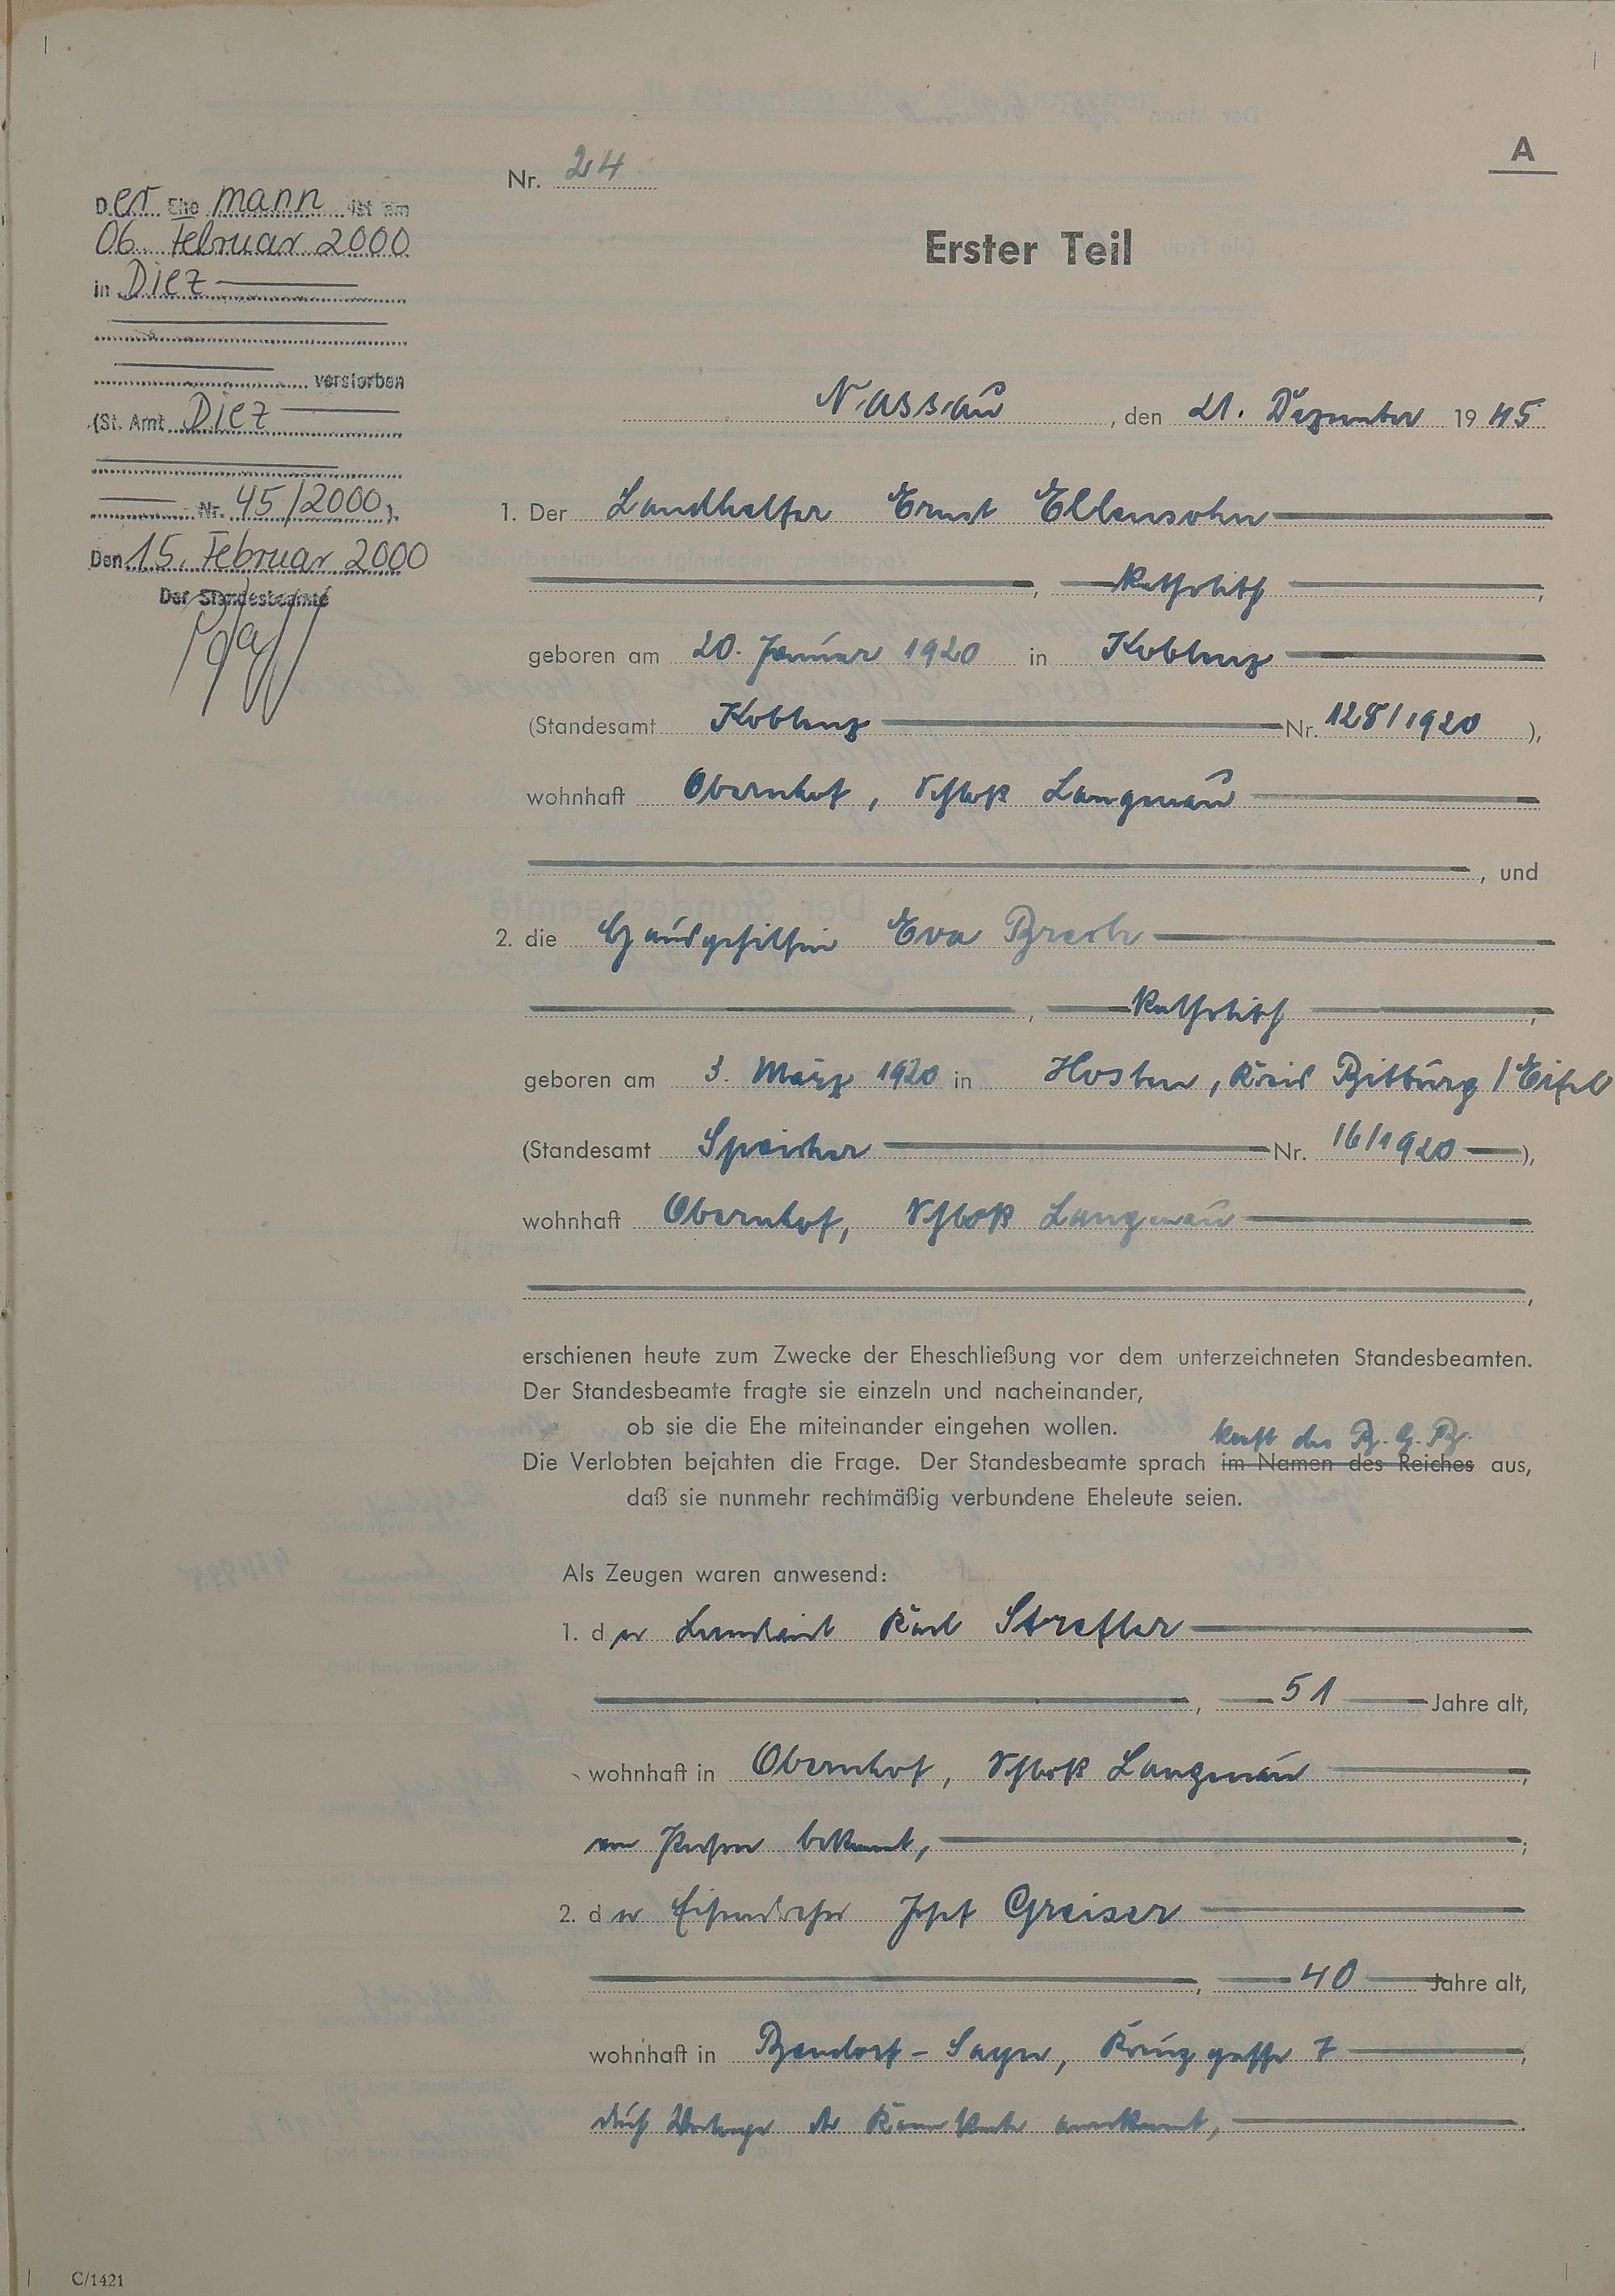 A
Nr. 24
Erster Teil
Der Ehe mann ist am
06. Februar 2000
in Diez
verstorben
(St. Amt Diez
Nr. 45/2000).
Den 15. Februar 2000
Der Standesbeamte
Nassau, den 21. Dezember 1945
1. Der Landhelfer Ernst Ellensohn
, katholisch,
geboren am 20. Januar 1920 in Koblenz
(Standesamt Koblenz Nr. 128/1920),
wohnhaft Obernhof, Schloß Langenau
, und
2. die Hausgehilfin Eva
, katholisch,
geboren am 3. März 1920 in Hosten, Kreis Bitburg / Eifel
(Standesamt Speicher Nr. 16/1920),
wohnhaft Obernhof, Schloß Langenau
,
erschienen heute zum Zwecke der Eheschließung vor dem unterzeichneten Standesbeamten.
Der Standesbeamte fragte sie einzeln und nacheinander,
ob sie die Ehe miteinander eingehen wollen.
kraft des B.G.B.
Die Verlobten bejahten die Frage. Der Standesbeamte sprach im Namen des Reiches aus,
daß sie nunmehr rechtmäßig verbundene Eheleute seien.
Als Zeugen waren anwesend:
1. der Landwirt Karl
, 51 Jahre alt,
wohnhaft in Obernhof, Schloß Langenau,
von Person bekannt,;
2. der Eisendreher Josef Greiser
, 40 Jahre alt,
wohnhaft in Bendorf-Sayn, Kreuzgasse 7,
durch Vorlage der Kennkarte anerkannt,.
C/1421